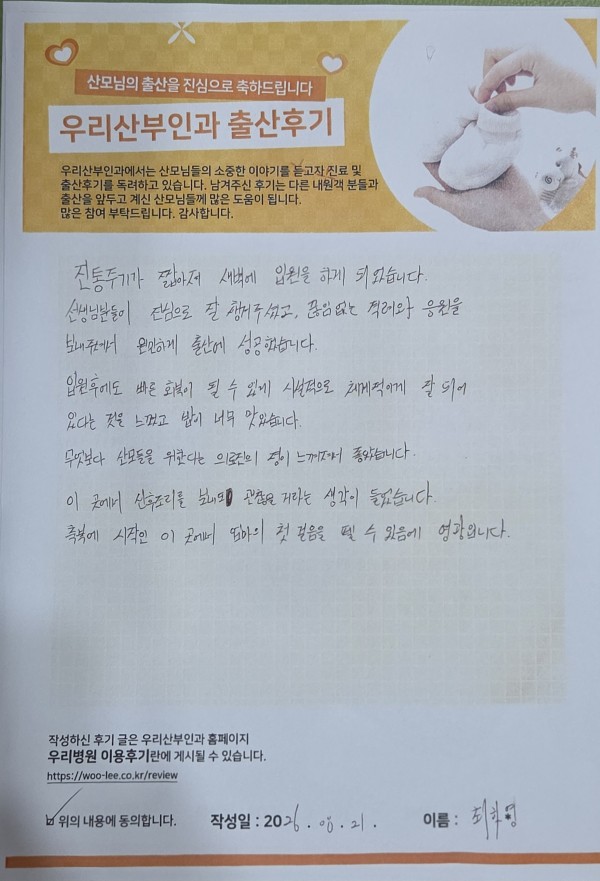 산모님의 출산을 진심으로 축하드립니다
우리산부인과 출산후기
우리산부인과에서는 산모님들의 소중한 이야기를 듣고자 진료 및
출산후기를 독려하고 있습니다. 남겨주신 후기는 다른 내원객 분들과
출산을 앞두고 계신 산모님들께 많은 도움이 됩니다.
많은 참여 부탁드립니다. 감사합니다.
진통주기가 짧아져 새벽에 입원을 하게 되었습니다.
선생님분들이 진심으로 잘 챙겨주셨고, 끊임없는 격려와 응원을
보내주셔서 원만하게 출산에 성공했습니다.
입원후에도 빠른 회복이 될 수 있게 시설적으로 체계적이게 잘 되어
있다는 것을 느꼈고 밥이 너무 맛있습니다.
무엇보다 산모들을 위한다는 의료진의 정이 느껴져서 좋았습니다.
이 곳에서 산후조리를 보내도 괜찮을 거라는 생각이 들었습니다.
축복에 시작인 이 곳에서 엄마의 첫 걸음을 뗄 수 있음에 영광입니다.
작성하신 후기 글은 우리산부인과 홈페이지
우리병원 이용후기란에 게시될 수 있습니다.
https://woo-lee.co.kr/review
위의 내용에 동의합니다. 작성일 : 2026. 08. 21. 이름 : 최하영